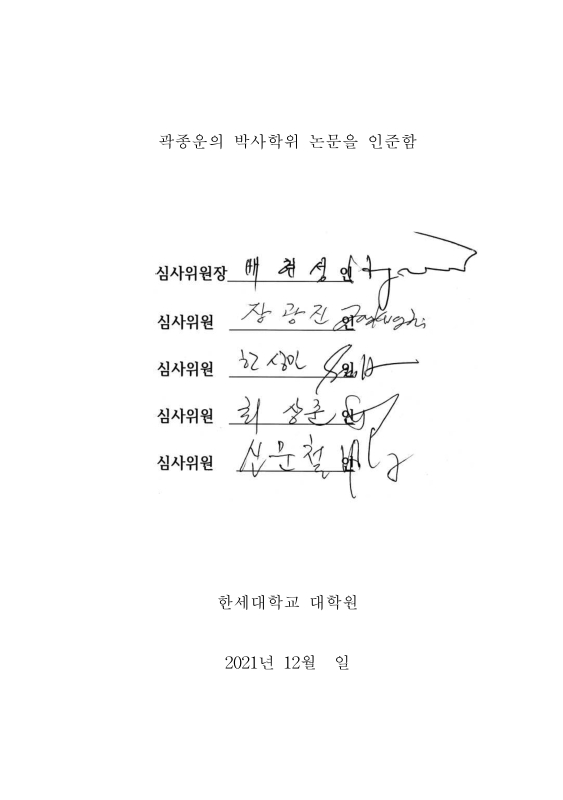 곽종운의 박사학위 논문을 인준함
심사위원장 배 현 성 인
심사위원 장 광 진 인
심사위원 한 상 인 인
심사위원 최 상 준 인
심사위원 신 문 철 인
한세대학교 대학원
2021년 12월 일